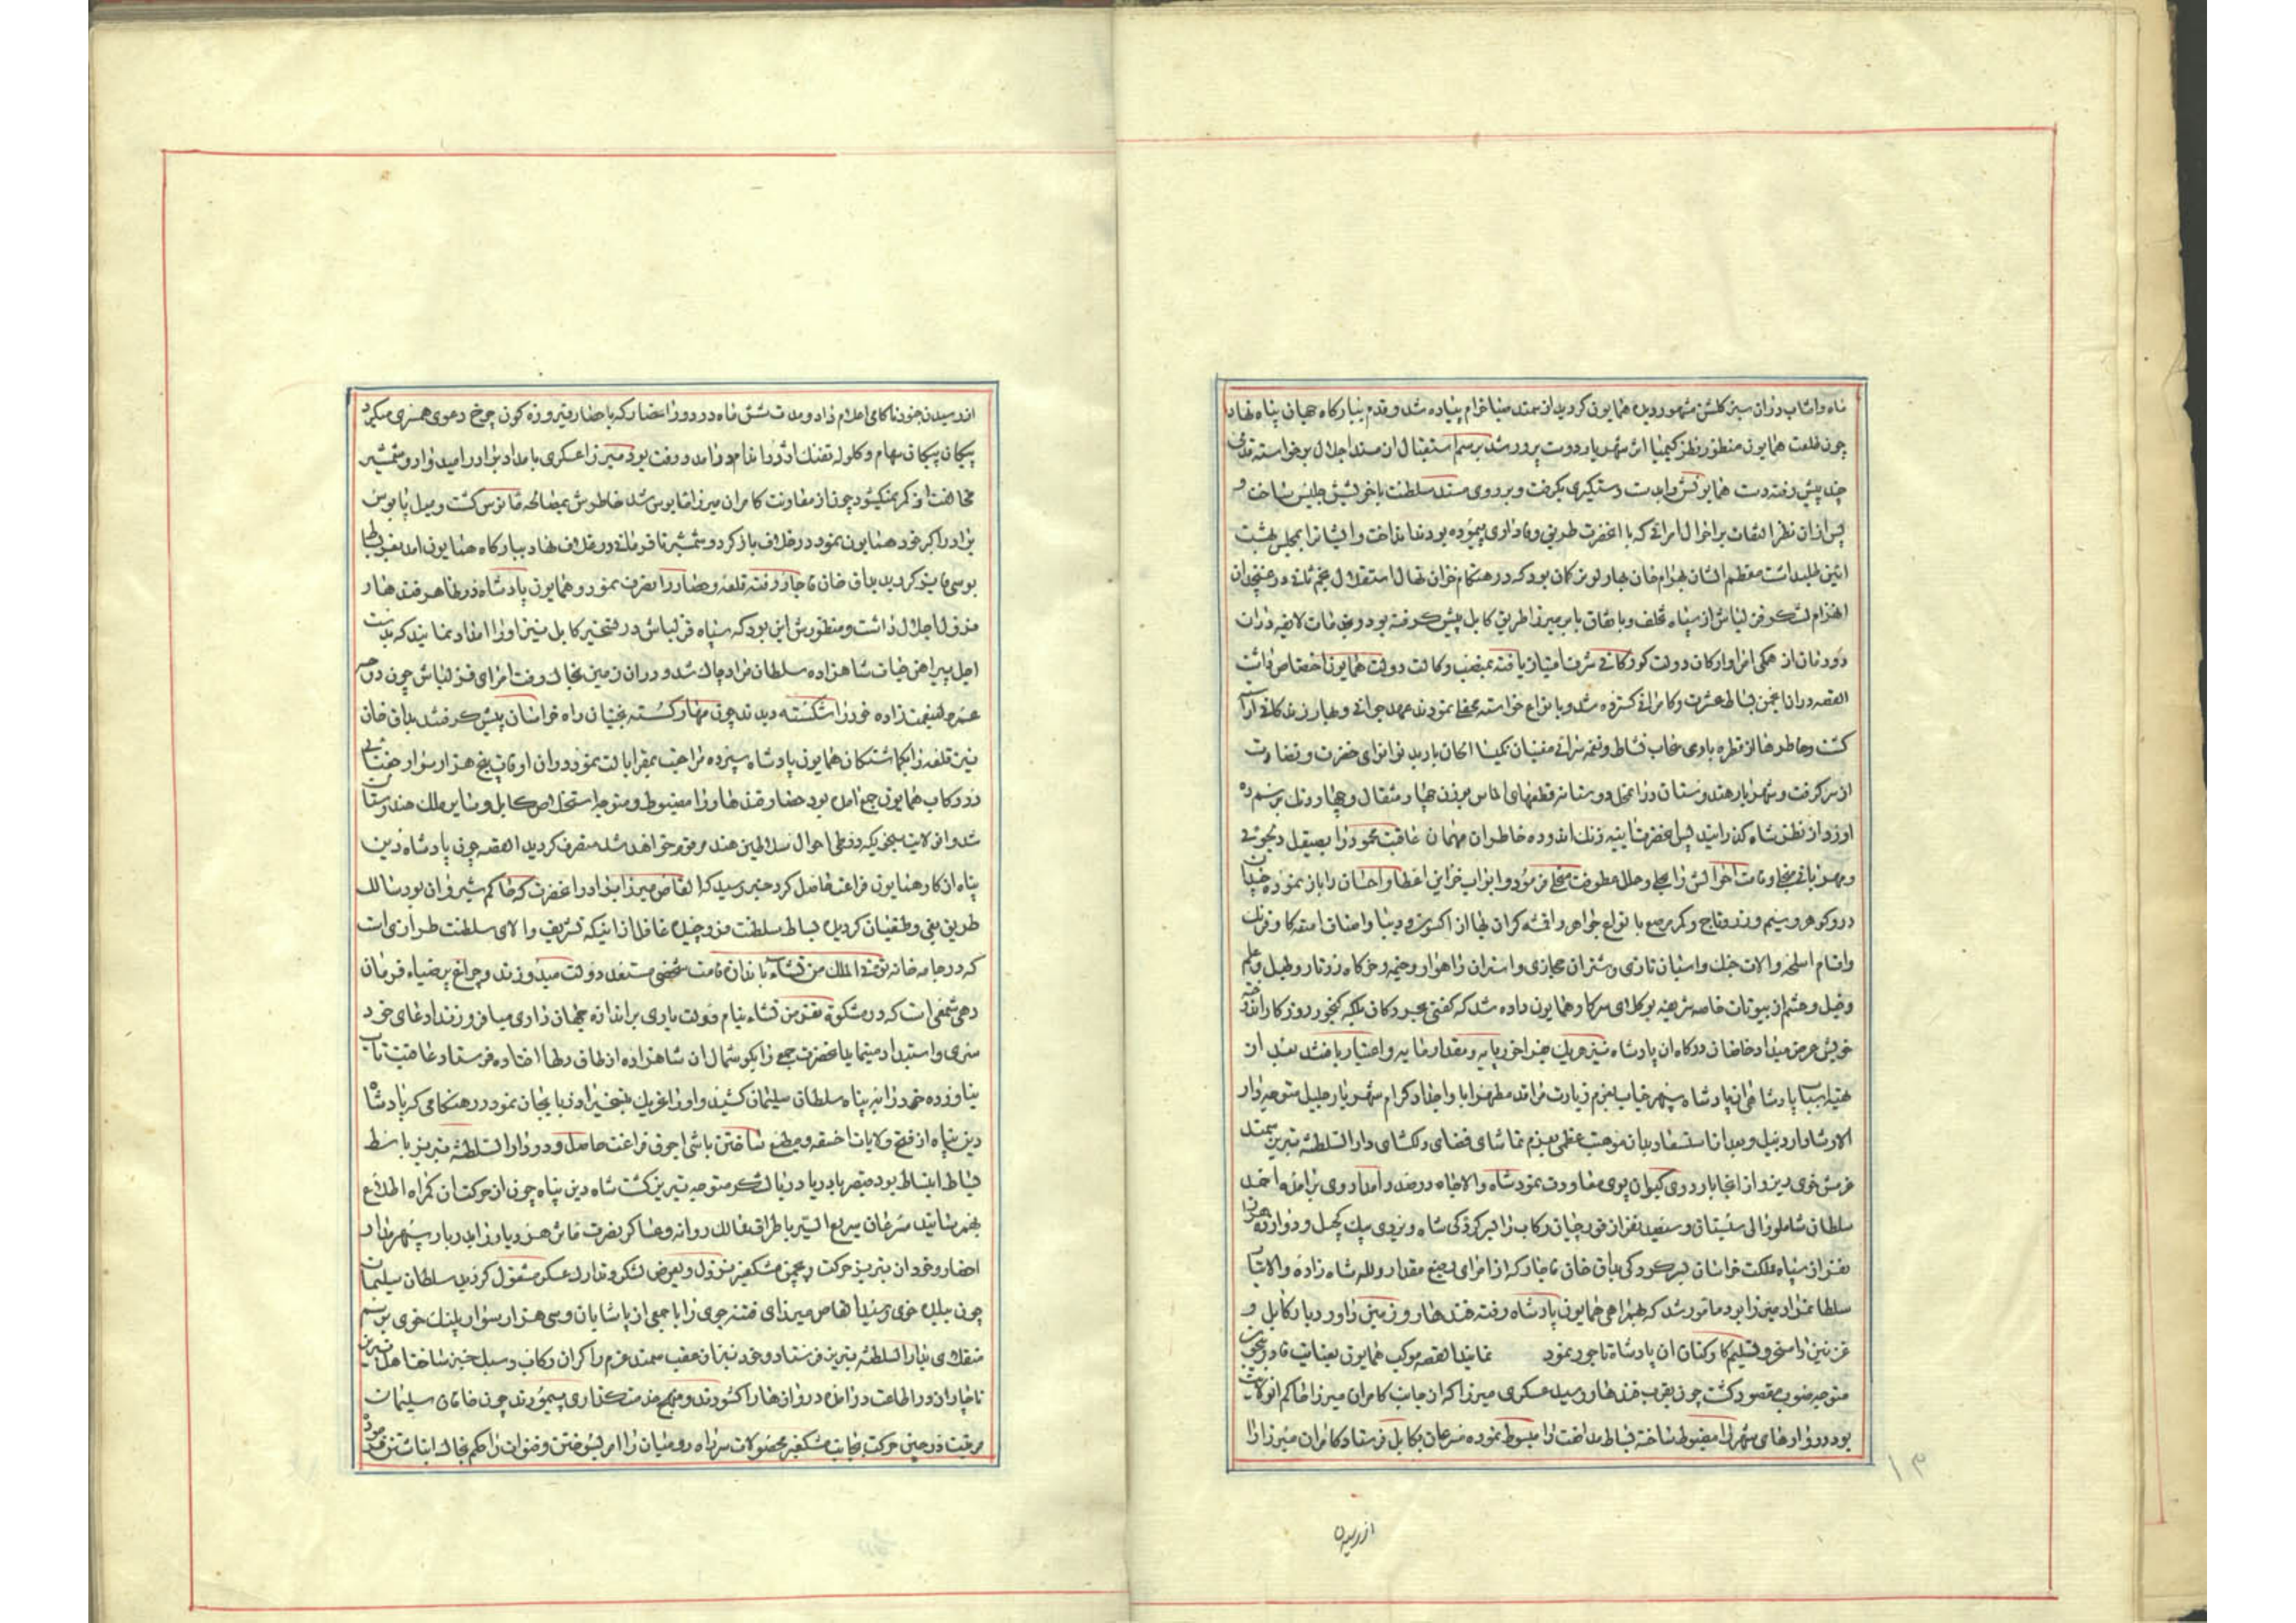 ماه واشاب دران سبز کلشن مشهور دیده همایون کردید از سمند صبا خرام پیاده شد و قدم ببارکاه جهان پناه نهاد
چون طلعت همایون منظور نظر کیمیا اثر شهریار دوست پرور شد برسم استقبال از مسند اجلال برخواسته قدمی
چند پیش رفته دست همایونش را بدست دستکیری بکرفت و بر روی مسند سلطنت با خویشش جلیس ساخت و
پس ازان نظر التفات بر احوال امرائی که با اعلحضرت طریق وفاداری پیموده بودند انداخت و ایشانرا بمجلس بهشت
ائین طلبداشت معظم الشان بهرام خان بهارلو ترکمان بود که در هنکام خزان نهال استقلال
انهزام لشکر قزلباش از سپاه تخلف و باتفاق بابر میرزا طریق کابل پیش کرفته بود و بقیمات لایقه دران
دودمان از همکی امرا و ارکان دولت کورکانی شرف امتیاز یافته بمنصب وکالت دولت همایون اختصاص داشت
القصه دران انجمن بساط عشرت و کامرانی کسترده شد و بانواع خواسته محفلی نمودند عهد جوانی و بهار زندکانی ارا
کشت و خاطرها از قطره باری سحاب نشاط و نغمه سرائی مغنیان نکیسا الحان باربد نوا نوای خضرت و نضارت
از سر کرفت و شهریار هندوستان دران محفل دوستانه قطعهای الماس بوزن چهار مثقال و چهار دنک برسم ره
اورد از نظر شاه کذرانید پس اعلحضرت ایینه زنک اندوده خاطر ان مهمان عاقبت محمود را بصیقل دلجوئی
و مهربانی مجلی و قامت احوالش را بحلی و حلل عطوفت محلی فرمود و ابواب خزاین اعطا و احسان را باز نموده چندان
در و کوهر و سیم و زر و تاج و کمر مرصع با انواع جواهر و اقمشه کران بها از اکسون و دیبا و اصناف امتعه کار فرنک
و اقسام اسلحه و الات جنک و اسبان تازی و شتران حجازی و استران راهوار و خیمه و خرکاه زرتار و طبل و علم
و خیل و حشم از بیوتات خاصه شریفه بوکلای سرکار همایون داده شد که کفتی بحر و کان بلکه کنجور روزکار اندوخته
خویش عرض میداد خاصان درکاه ان پادشاه نیز هریک چیز اخور پایه و بقدار مایه و اختیار یافتند بعد از
تهیه اسباب پادشاهی ان پادشاه سپهر جناب بعزم زیارت مراقد مطهر ابا و اجداد کرام شهریار جلیل متوجه دار
الارشاد اردبیل و بعد از استسعاد بدان موهبت عظمی بعزم تماشای فضای دلکشای دار السلطنه تبریز سمند
عرش خوی ریز و از انجا باردوی کیوان پوی معاودت نمود شاه والاجاه درصدد امداد وی برامده احمد
سلطان شاملو والی سیستان و سیصد نفر از قورچیان رکاب را بسرکردکی شاه ویردی بیک کچل و دوازده هزار
نفر از سپاه مملکت خراسان بسرکردکی بداق خان قاجار که از امرای رفیع مقدار و لله شاه زاده والاتبار
سلطانمراد میرزا بود مامور شد که بهمراهی همایون پادشاه رفته قندهار و زمین داور و دیار کابل و
غزنین را مسخر و تسلیم کارکنان ان پادشاه تاجور نمود نمایند القصه موکب همایون بعنایت قادر بیچون
متوجه صوب مقصود کشت چون بقرب قندهار رسید عسکری میرزا که از جانب کامران میرزا حاکم انولایت
بود دروازهای شهر را مضبوط ساخته بساط مدافعت را مبسوط نموده مسرعان بکابل فرستاد کامران میرزا را
از رسیدن
از رسیدن جنود ناکامی اعلام داد و مدت شش ماه در دور انحصار که با حصار فیروزه کون چرخ دعوی همسری میکرد
پیکان پیکان سهام و کلوله تفنک اژدها فام در امد و رفت بود میرزا عسکری بامداد برادر امیدوار و شمشیر
مخالفت از کمر نمیکشود چون از معاونت کامران میرزا مایوس شد خاطرش بمصالحه مانوس کشت و میل پابوس
برادر اکبر خود همایون نمود در خلاف باز کرد و شمشیر نافرمانی در غلاف نهاد ببارکاه همایون امد بعز بساط
بوسی فایز کردید بداق خان قاجار رفته قلعه و حصار را بتصرف نمود و همایون پادشاه در ظاهر قندهار
نزول اجلال داشت و منظورش این بود که سپاه قزلباش در تسخیر کابل نیز او را امداد نمایند که بدست
اجل پیراهن حیات شاهزاده سلطان مراد چاک شد و دران زمین بخاک رفت امرای قزلباش چون دوحه
عمر ولینعمت زاده خود را شکسته دیدند چون مهار کسسته بختیان راه خراسان پیش کرفتند بداق خان
نیز قلعه را بکماشتکان همایون پادشاه سپرده مراجعت بمقر ایالت نمود دران اوقات پنج هزار سوار جغتای
در رکاب همایون جمع امده بود حصار قندهار را مضبوط و متوجه استخلاص کابل و سایر ملک هندوستان
شد و ان ولایت بنحویکه در طی احوال سلاطین هند مرقوم خواهد شد متصرف کردید القصه چون پادشاه دین
پناه از کار همایون فراغت حاصل کرد خبر رسید که القاص میرزا برادر اعلحضرت که حاکم شیروان بود سالک
طریق بغی و طغیان کردیده بساط سلطنت فرو چیده غافل ازاینکه تشریف والای سلطنت طرازی است
که در جامه خانه توتی الملک من تشاء باندازه قامت شخص مستعد دولت میدوزند و چراغ پر ضیاء فرمان
دهی شمعی است که در مشکوة تعز من تشاء بنام دولت یاری براندازه جهان داری میافروزند ادعای خود
سری و استبداد مینماید اعلحضرت جمعی را بکوشمال ان شاهزاده از طاق دلها افتاده فرستاد عاقبت تاب
نیاورده خود را به پناه سلطان سلیمان کشید و او را تحریک بتسخیر اذربایجان نمود در هنکامی که پادشاه
دین پناه از فتح ولایات اخسقه و مطیع ساختن باشی اچوق فراغت حاصل و در دار السلطنه تبریز باسط
بساط انبساط بود قیصر با دریا دریا لشکر متوجه تبریز کشت شاه دین پناه چون از حرکت ان کمراه اطلاع
بهم رسانید مسرعان سریع السیر باطراف ممالک روانه و عساکر نصرت ماثر هر دیار را بدربار سپهر مدار
احضار و خود از تبریز حرکت و بچمن مشکنبر نزول و بعرض لشکر و تدارک عسکر مشغول کردید سلطان سلیمان
چون ببلده خوی رسید القاص میرزای فتنه جوی را با جمعی از پاشایان و سی هزار سوار پلنک خوی برسم
منقلای بدار السلطنه تبریز فرستاد و خود نیز از عقب سمند عزم را کران رکاب و سبک خیز ساخت اهل تبریز
ناچار از در اطاعت در امده دروازها را کشودند و منهج خدمتکذاری پیمودند چون خاقان سلیمان
مرتبت در حین حرکت بجانب مشکنبر محصولات سر راه رومیان را امر بسوختن و قنوات را حکم بخاک انباشتن فرموده